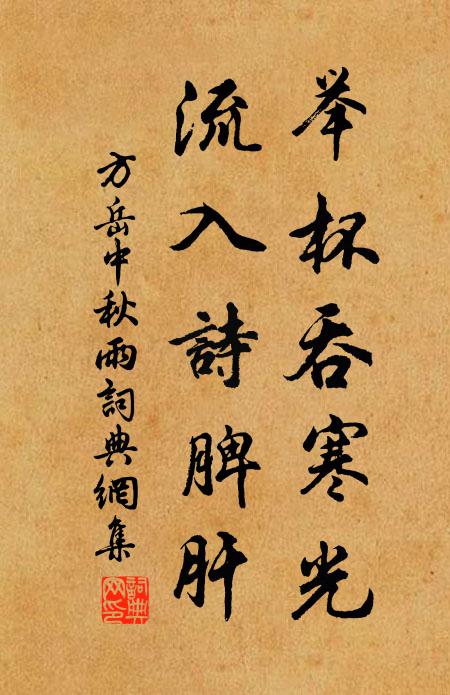 举杯吞寒光
流入詩脾肝
方岳中秋雨詞典網集
詞典网印